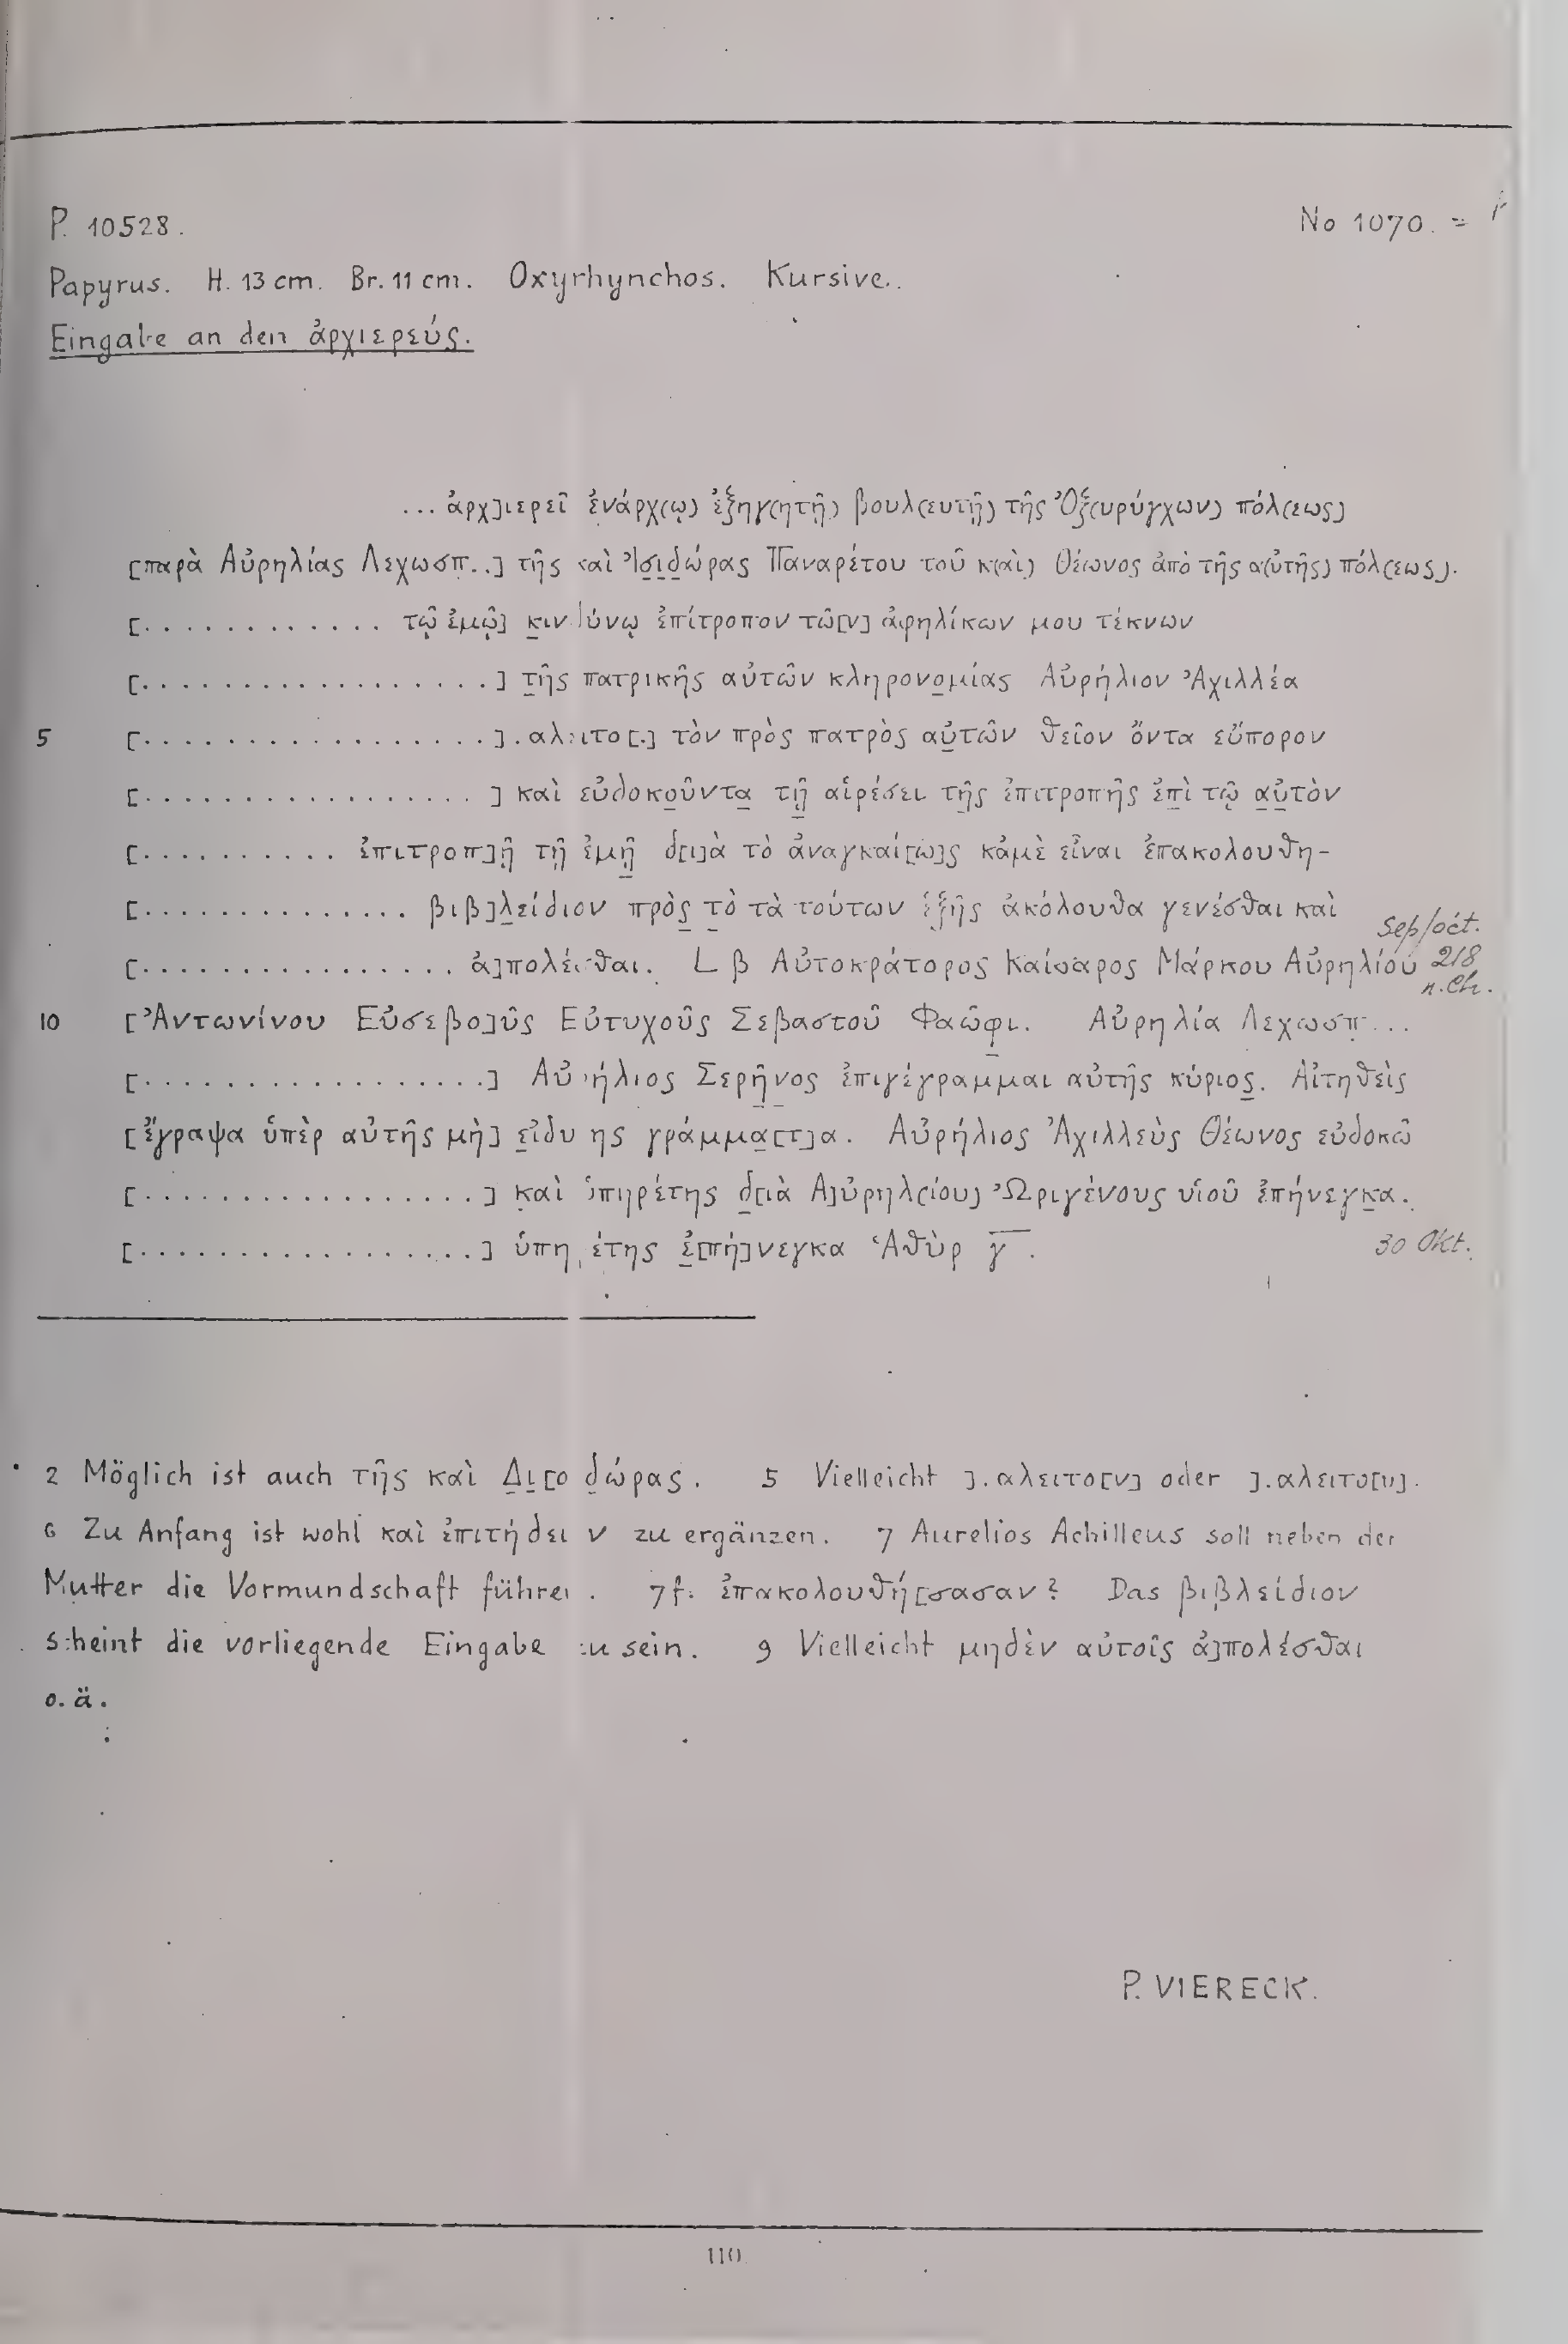 P. 10528.
No 1070. =
Papyrus. H. 13 cm. Br. 11 cm. Oxyrhynchos. Kursive.
Eingabe an den ἀρχιερεύς.
... ἀρχ]ιερεῖ ἐνάρχ(ῳ) ἐξηγ(ητῇ) βουλ(ευτῇ) τῆς Ὀξ(υρύγχων) πόλ(εως)
[παρὰ Αὐρηλίας Λεχωσπ..] τῆς καὶ Ἰσιδώρας Παναρέτου τοῦ κ(αὶ) Θέωνος ἀπὸ τῆς α(ὐτῆς) πόλ(εως).
[............ τῷ ἐμῷ] κινδύνῳ ἐπίτροπον τῶ[ν] ἀφηλίκων μου τέκνων
[...................] τῆς πατρικῆς αὐτῶν κληρονομίας Αὐρήλιον Ἀχιλλέα
5 [...................].αλειτο[.] τὸν πρὸς πατρὸς αὐτῶν θεῖον ὄντα εὔπορον
[..................] καὶ εὐδοκοῦντα τῇ αἱρέσει τῆς ἐπιτροπῆς ἐπὶ τῷ αὐτὸν
[........... ἐπιτροπ]ῇ τῇ ἐμῇ δ[ι]ὰ τὸ ἀναγκαί[ω]ς κἀμὲ εἶναι ἐπακολουθη-
[.............. βιβ]λείδιον πρὸς τὸ τὰ τούτων ἑξῆς ἀκόλουθα γενέσθαι καὶ
Sep/oct.
[................. ἀ]πολέσθαι. L β Αὐτοκράτορος Καίσαρος Μάρκου Αὐρηλίου 218
n. Ch.
10 [Ἀντωνίνου Εὐσεβο]ῦς Εὐτυχοῦς Σεβαστοῦ Φαῶφι. Αὐρηλία Λεχωσπ...
[..................] Αὐρήλιος Σερῆνος ἐπιγέγραμμαι αὐτῆς κύριος. Αἰτηθεὶς
[ἔγραψα ὑπὲρ αὐτῆς μὴ] εἰδυίης γράμμα[τ]α. Αὐρήλιος Ἀχιλλεὺς Θέωνος εὐδοκῶ
[..................] καὶ ὑπηρέτης δ[ιὰ Α]ὐρηλ(ίου) Ὠριγένους υἱοῦ ἐπήνεγκα.
[..................] ὑπηρέτης ἐ[πή]νεγκα Ἁθὺρ γ̅. 30 Okt.
2 Möglich ist auch τῆς καὶ Δι[ο]δώρας. 5 Vielleicht ].αλειτο[ν] oder ].αλειτο[υ].
6 Zu Anfang ist wohl καὶ ἐπιτήδειον zu ergänzen. 7 Aurelios Achilleus soll neben der
Mutter die Vormundschaft führen. 7 f. ἐπακολουθή[σασαν? Das βιβλείδιον
scheint die vorliegende Eingabe zu sein. 9 Vielleicht μηδὲν αὐτοῖς ἀ]πολέσθαι
o. ä.
P. VIERECK.
110